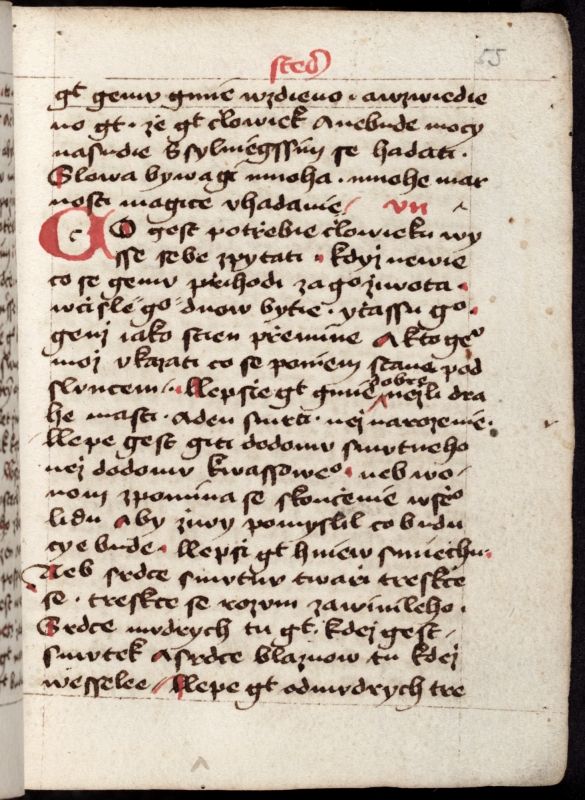 sted
55
gt gemu gmie wzdieno · awzwiedie
no gt · ze gt clowiek Anebude mocy
nasudie Ssylniegssim se hadati ·
Slowa bywagi mnoha · mnohe mar
nosti magice vhadanie / vii
CO gest potřebie člowieku wy
sse sebe zpytati · kdyz newie
co se gemu přihodi zagoziwota ·
wčisle go dnow bytie · yčassu go ·
genz iako stien přemine Aktoge
moz vkazati co se poniem stane pod
sluncem / · llepsie gt gmie dobre nezli dra
he masti · Aden smrti · nez narozenie ·
llepe gest giti dodomu smutneho
nez dodomu kwassoweo · neb wo /
nom zpomina se skončenie wsseo
lidu Aby ziwy pomyslil co budu
cye bude · llepsi gt hniew smiechu ·
Neb srdce smutnu twari treskce
se · treskce se rozum zawinileho ·
Srdce mudrych tu gt · kdez gest /
smutek Asrdce blaznow tu kdez
wesselee / llepe gt odmudrych tre